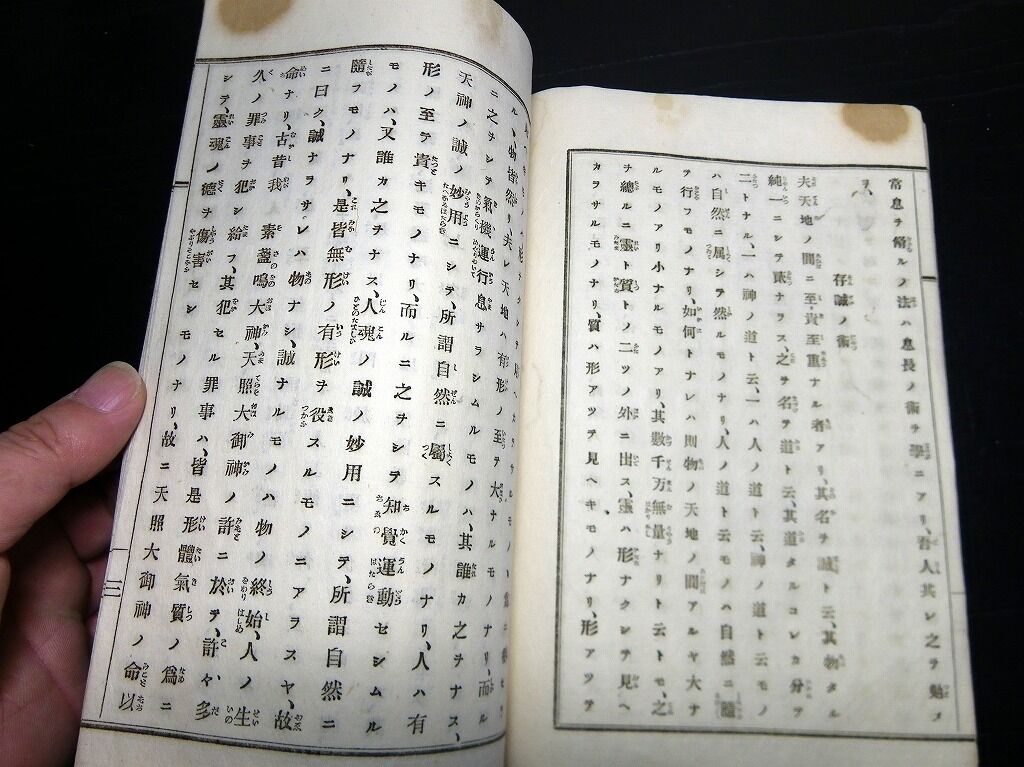 常息ヲ脩ルノ法ハ息長ノ術ヲ學ニアリ、吾人其レ之ヲ勉メ
ヲ、
存誠ノ術
夫天地ノ間ニ至貴至重ナル者アリ、其名ヲ誠ト云、其物タル
純一ニシテ貮ナラス、之ヲ名ヲ道ト云、其道タルコレカ分テ
二トナル、一ハ神ノ道ト云、一ハ人ノ道ト云、神ノ道ト云モノ
ハ自然ニ属シテ然ルモノナリ、人ノ道ト云モノハ自然ニ隨
テ行フモノナリ、如何トナレハ則物ノ天地ノ間アルヤ大ナ
ルモノアリ小ナルモノアリ、其数千万無量ナリト云トモ、之
ヲ總ルニ靈ト質トノ二ツノ外ニ出ス、靈ハ形ナクシテ見ヘ
カラサルモノナリ、質ハ形アツテ見ヘキモノナリ、形アツテ
ル、物皆然リ夫レ天地ハ有形ノ至テ大ナルモノナリ、而ル
ニ之ヲシテ氣機運行息サラシムルモノハ、其誰カ之ヲナス、
天神ノ誠ノ妙用ニシテ、所謂自然ニ屬スルモノナリ、人ハ有
形ノ至テ貴キモノナリ、而ルニ之ヲシテ知覺運動セシムル
モノハ、又誰カ之ヲナス、人魂ノ誠ノ妙用ニシテ、所謂自然ニ
隨フモノナリ、是皆無形ノ有形ヲ役スルモノニアラスヤ、故
ニ曰ク、誠ナラサレハ物ナシ、誠ナルモノハ物ノ終始、人ノ生
命ナリ、古昔我素盞嗚大神、天照大御神ノ許ニ於テ、許々多
久ノ罪事ヲ犯シ給フ、其犯セル罪事ハ、皆是形體氣質ノ為ニ
シテ、靈魂ノ德ヲ傷害セシモノナリ、故ニ天照大御神ノ命以
三